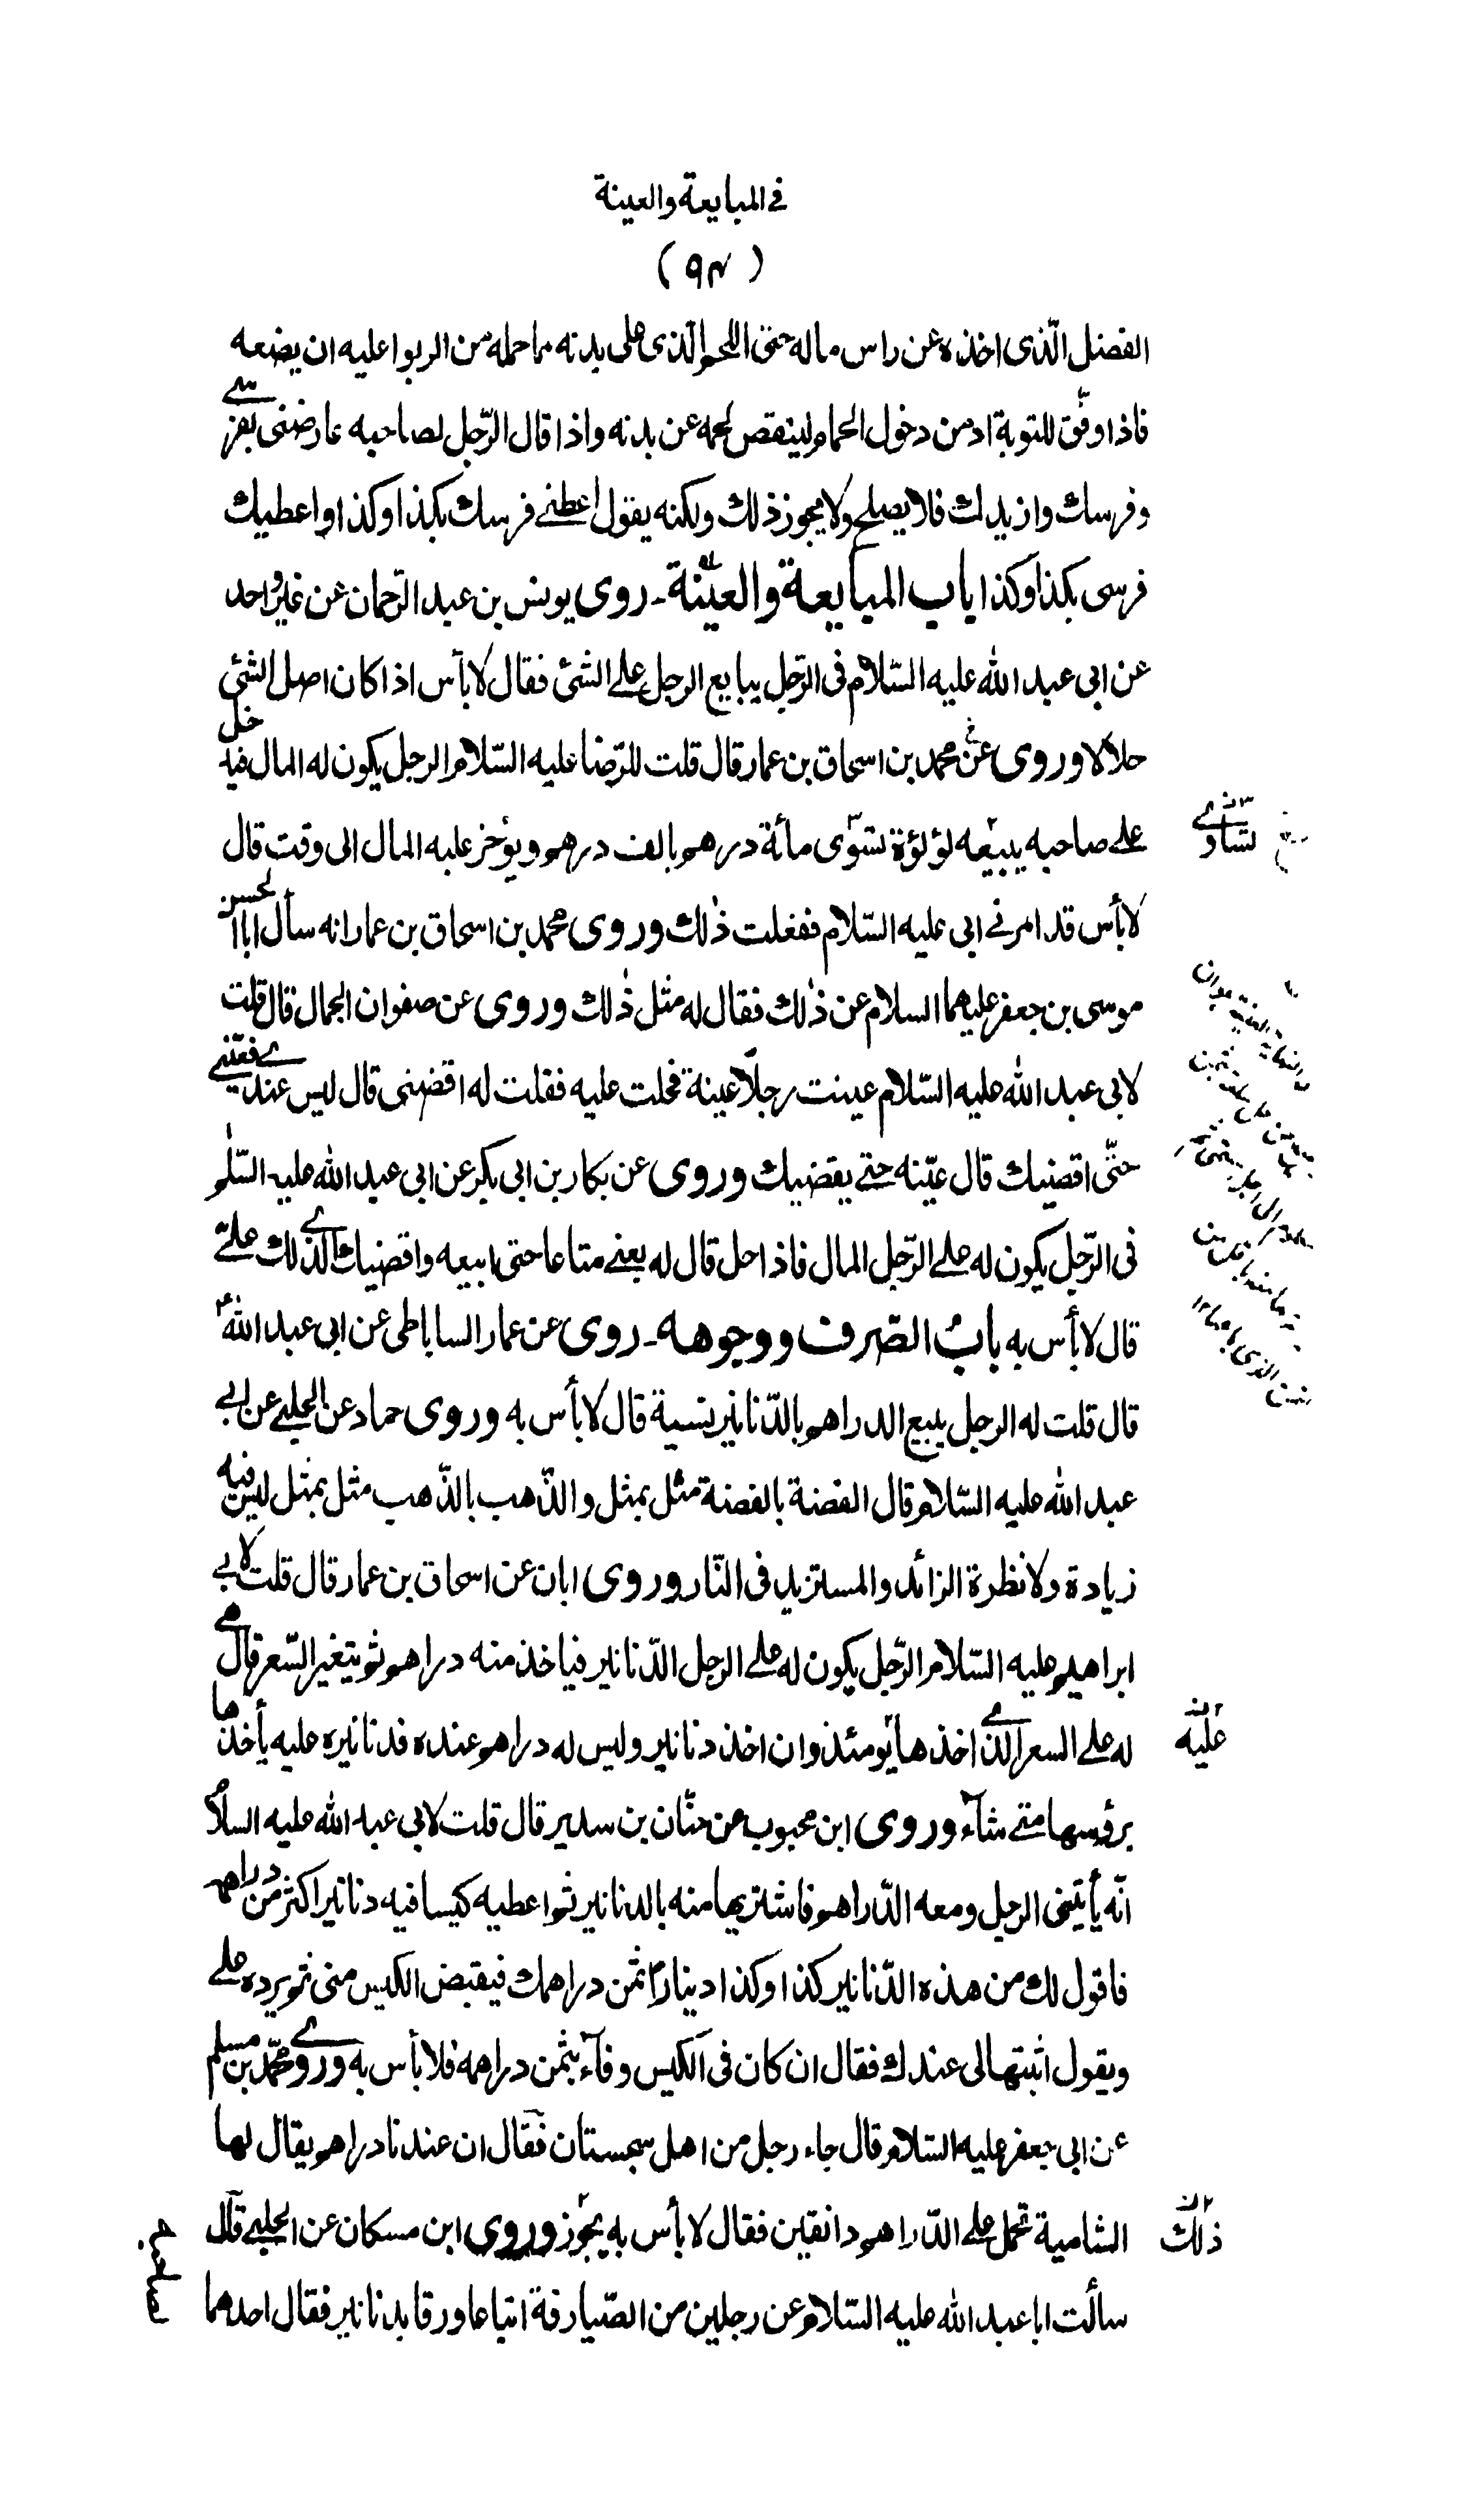 في المبايعة والعينة
(٩٤)
الفضل الّذى اخذه عن راس ماله حتى اللحم الّذى على بدنه مما حمله من الربوا عليه ان يضعه
فاذا وفّق للتوبة ادمن دخول الحمام لينقص لحمه عن بدنه واذا قال الرّجل لصاحبه عارضنى بفرسى
وفرسك وازيدك فلا يصلح ولا يجوز ذلك ولكنه يقول اعطنى فرسك بكذا وكذا واعطيك
فرسى بكذا وكذا باب المبايعة والعيّنة ـ روى يونس بن عبد الرّحمان عن غير واحد
عن ابى عبد الله عليه السّلام فى الرّجل يبايع الرجل على الشئ فقال لا بأس اذا كان اصل الشئ
حلالا وروى عن محمد بن اسحاق بن عمار قال قلت للرّضا عليه السّلام الرجل يكون له المال فيدخل
على صاحبه يبيعه لؤلؤة تسوّى مائة درهم بالف درهم ويؤخر عليه المال الى وقت قال
لا بأس قد امرنى ابى عليه السّلام ففعلت ذلك وروى محمد بن اسحاق بن عمار انه سأل ابا الحسن
موسى بن جعفر عليهما السلام عن ذلك فقال له مثل ذلك وروى عن صفوان الجمال قال قلت
لابى عبد الله عليه السّلام عينت رجلا عينة فحلت عليه فقلت له اقضنى قال ليس عندى فعيّنى
حتّى اقضيك قال عيّنه حتى يقضيك وروى عن بكار بن ابى بكر عن ابى عبد الله عليه السّلم
فى الرّجل يكون له على الرّجل المال فاذا حل قال له بعنى متاعا حتى ابيعه واقضيك الذى لك علىّ
قال لا بأس به باب الصّرف ووجوهه ـ روى عن عمار الساباطى عن ابى عبد الله ع
قال قلت له الرجل يبيع الدراهم بالدّنانير نسية قال لا بأس به وروى حماد عن الحلبى عن ابى
عبد الله عليه السّلام قال الفضة بالفضة مثل بمثل والذّهب بالذّهب مثل بمثل ليس فيه
زيادة ولا نظرة الزائد والمستزيد فى النّار وروى ابان عن اسحاق بن عمار قال قلت لابى
ابراهيم عليه السّلام الرّجل يكون له على الرجل الدّنانير فياخذ منه دراهم ثم يتغير السّعر قال هى
له على السعر الذى اخذها يومئذ وان اخذ دنانير وليس له دراهم عنده فدنانيره عليه يأخذها
برؤسها متى شآء وروى ابن محبوب عن حنّان بن سدير قال قلت لابى عبد الله عليه السلام
انّه يأتينى الرجل ومعه الدّراهم فاشتريها منه بالدنانير ثم اعطيه كيسا فيه دنانير اكثر من دراهمه
فاقول لك من هذه الدّنانير كذا وكذا دينارًا ثمن دراهمك فيقبض الكيس منى ثم يرده على
ويقول اثبتها لى عندك فقال ان كان فى الكيس وفآء بثمن دراهمه فلا بأس به وروى محمّد بن مسلم
عن ابى جعفر عليه السّلام قال جاء رجل من اهل سجستان فقال ان عندنا دراهم يقال لها
الشامية تحمل على الدّراهم دانقين فقال لا بأس به يجوز وروى ابن مسكان عن الحلبى قال
سألت ابا عبد الله عليه السّلام عن رجلين من الصّيارفة ابتاعا ورقا بدنانير فقال احدهما
تساوى
عليه
ذلك